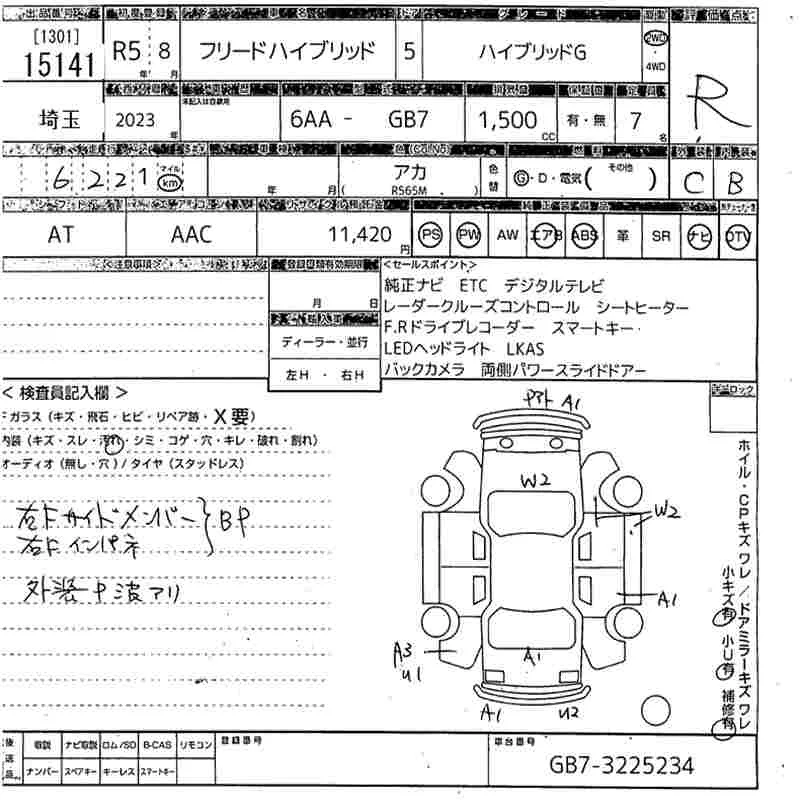 出品番号
初度登録
グレード
評価点
[1301]
15141
R5 8
年 月
フリードハイブリッド
5
ハイブリッドG
2WD
・
4WD
R
埼玉
2023
年
6AA - GB7
排気量
1,500
CC
有・無
定員
7
名
6221
マイル
km
年 月
アカ
( R565M )
色替
燃料
G・D・電気( その他 )
C
B
AT
AAC
11,420
円
PS
PW
AW
エアB
ABS
革
SR
ナビ
DTV
<注意事項>
登録書類有効期限
月 日
輸入車
ディーラー・並行
左H ・ 右H
<セールスポイント>
純正ナビ ETC デジタルテレビ
レーダークルーズコントロール シートヒーター
F.Rドライブレコーダー スマートキー
LEDヘッドライト LKAS
バックカメラ 両側パワースライドドアー
<検査員記入欄>
Fガラス(キズ・飛石・ヒビ・リペア跡・X要)
内装(キズ・スレ・汚れ・シミ・コゲ・穴・キレ・破れ・割れ)
オーディオ(無し・穴)/タイヤ(スタッドレス)
右Fサイドメンバー
右Fインパネ
}BP
外装中波アリ
A1
W2
W2
A1
A3
U1
A1
A1
U2
ホイル・CPキズワレ/ドアミラーキズワレ
小キズ有 小U有 補修有
後送品
取説
ナビ取説
ロム/SD
B-CAS
リモコン
ナンバー
スペアキー
キーレス
スマートキー
登録番号
車台番号
GB7-3225234